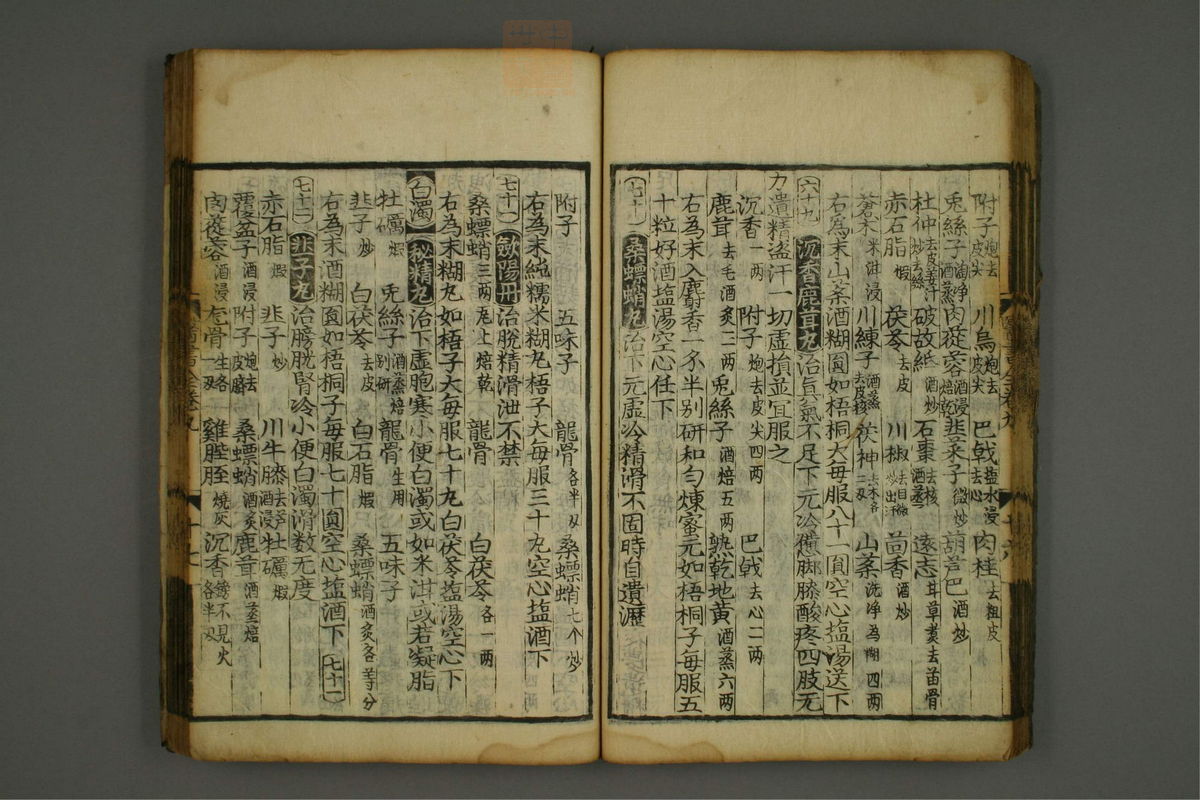 附子炮去皮尖 川烏炮去皮尖 巴戟盐水浸去心 肉桂去粗皮
兎絲子淘净酒蒸 肉蓯蓉酒浸焙乾 韭菜子微炒 葫芦巴酒炒
杜仲去皮姜汁炒去絲 破故紙酒炒 石棗去核酒蒸 遠志去苗骨
赤石脂煆 茯苓去皮 川椒去目炒出汗 茴香酒炒
蒼术米泔浸 川練子酒蒸去皮核 茯神去木各二两 山藥洗净為糊四两
右為末山藥酒糊圓如梧桐大每服八十一圓空心盐湯送下
六十九 沉香鹿茸丸 治真氣不足下元冷憊脚膝酸疼四肢无
力遺精盗汗一切虚損並宜服之
沉香一两 附子炮去皮尖四两 巴戟去心二两
鹿茸去毛酒炙二两 兎絲子酒焙五两 熟乾地黄酒蒸六两
右為末入麝香一分半别研和匀煉蜜元如梧桐子每服五
十粒好酒盐湯空心任下
七十 桑螵蛸丸 治下元虚冷精滑不固時自遺瀝
附子 五味子 龍骨各半两 桑螵蛸七个炒
右為末純糯米糊丸梧子大每服三十丸空心盐酒下
七十一 歛陽丹 治脱精滑泄不禁
桑螵蛸三两瓦上焙乾 龍骨 白茯苓各一两
右為末糊丸如梧子大每服七十丸白茯苓盐湯空心下
白濁 秘精丸 治下虚胞寒小便白濁或如米泔或若凝脂
牡礪煆 兎絲子酒蒸焙别研 龍骨生用 五味子
韭子炒 白茯苓去皮 白石脂煆 桑螵蛸酒炙各等分
右為末酒糊圓如梧桐子每服七十圓空心盐酒下 七十二
七十三 韭子丸 治膀胱腎冷小便白濁滑数无度
赤石脂煆 韭子炒 川牛膝去芦酒浸 牡礪煆
覆盆子酒浸 附子炮去皮臍 桑螵蛸酒炙 鹿茸酒蒸焙
肉蓯蓉酒浸 龙骨生各一两 雞䏶胵燒灰 沉香鎊不見火各半两